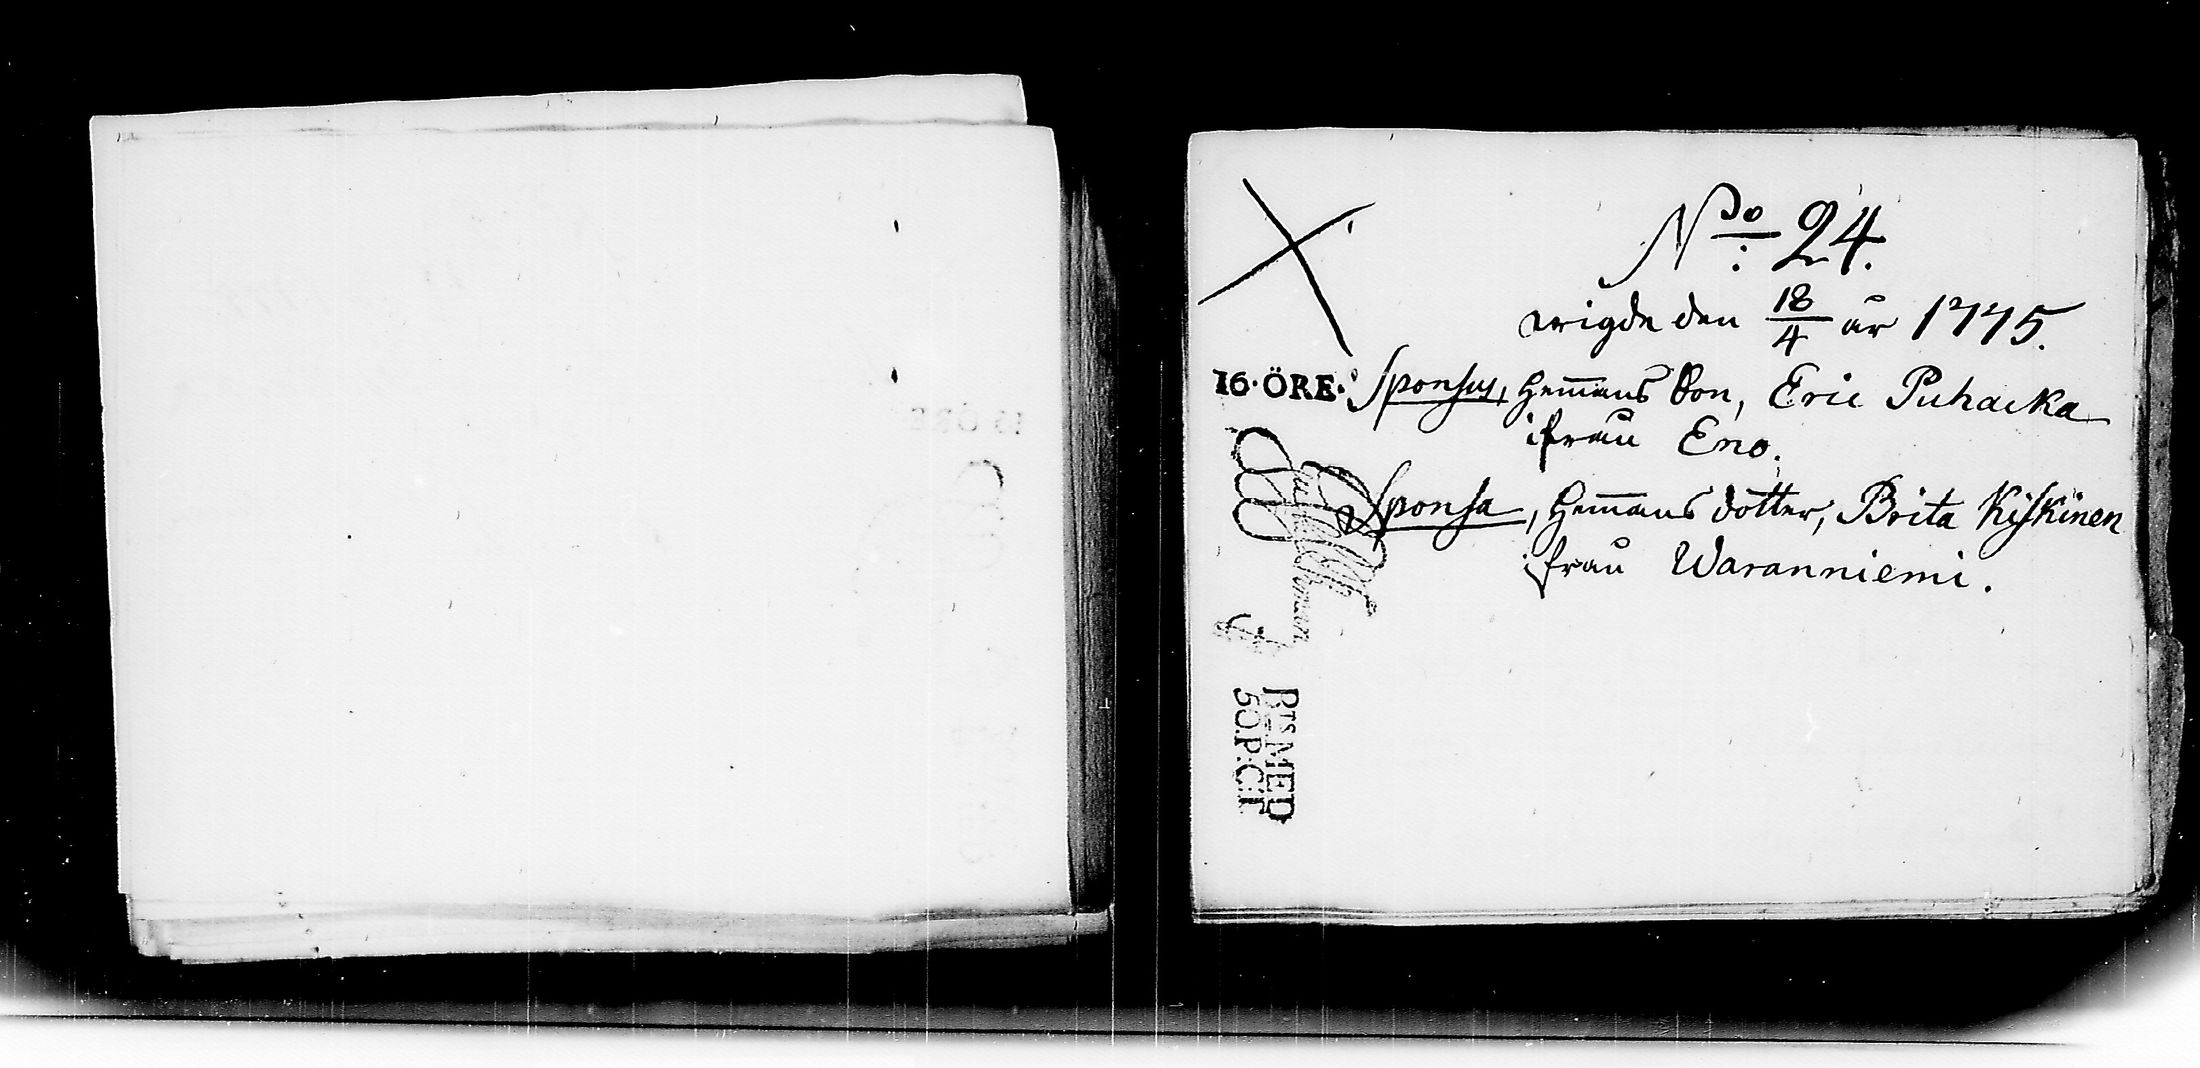 No: 24.
wigde den 18/4 år 1775.
16·ÖRE· Sponsus, Hemmans Son, Eric Puhacka
ifrån Eno.
Sponsa, Hemmans dotter, Brita Kiskinen
ifrån Waranniemi.
RTS MED
50.P:C:T